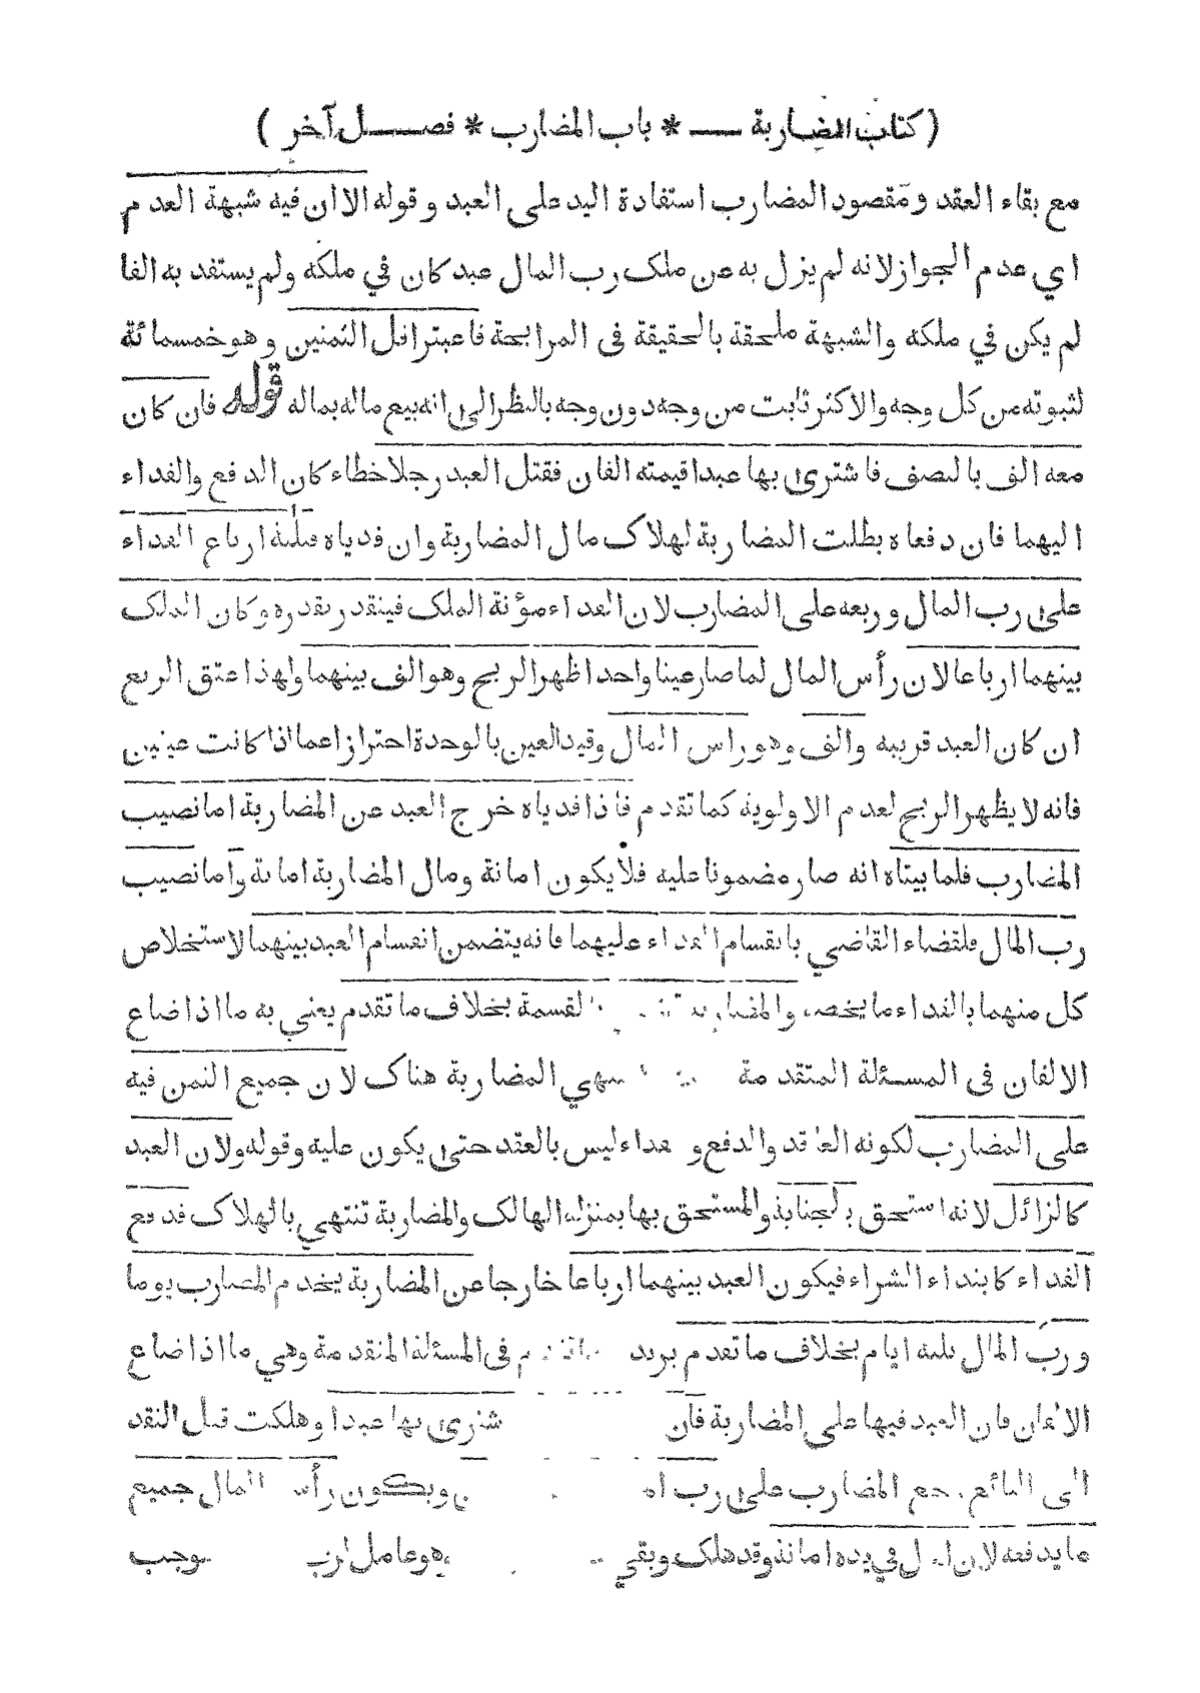 ( كتاب المضاربة — * باب المضارب * فصل آخر )
مع بقاء العقد ومقصود المضارب استفادة اليد على العبد وقوله الا ان فيه شبهة العدم
اي عدم الجواز لانه لم يزل به عن ملك رب المال عبد كان في ملكه ولم يستفد به الفا
لم يكن في ملكه والشبهة ملحقة بالحقيقة فى المرابحة فاعتبر اقل الثمنين وهو خمسمائة
لثبوته من كل وجه والاكثر ثابت من وجه دون وجه بالنظر الى انه بيع ماله بماله قوله فان كان
معه الف بالنصف فاشترى بها عبدا قيمته الفان فقتل العبد رجلا خطاء كان الدفع والفداء
اليهما فان دفعاه بطلت المضاربة لهلاك مال المضاربة وان فدياه فثلثة ارباع الفداء
على رب المال وربعه على المضارب لان الفداء مؤنة الملك فيتقدر بقدره وكان الملك
بينهما ارباعا لان رأس المال لما صار عينا واحدا ظهر الربح وهو الف بينهما ولهذا عتق الربع
ان كان العبد قريبه والف وهو راس المال وقيد العين بالوحدة احترازا عما اذا كانت عينين
فانه لا يظهر الربح لعدم الاولوية كما تقدم فاذا فدياه خرج العبد عن المضاربة اما نصيب
المضارب فلما بيناه انه صار مضمونا عليه فلا يكون امانة ومال المضاربة امانة وأما نصيب
رب المال فلقضاء القاضي بانقسام الفداء عليهما فانه يتضمن انقسام العبد بينهما لاستخلاص
كل منهما بالفداء ما يخصه والمضاربة القسمة بخلاف ما تقدم يعني به ما اذا ضاع
الالفان فى المسئلة المتقدمة المضاربة هناك لان جميع الثمن فيه
على المضارب لكونه العاقد والدفع و الفداء ليس بالعقد حتى يكون عليه وقوله ولان العبد
كالزائل لانه استحق بالجناية والمستحق بها بمنزلة الهالك والمضاربة تنتهي بالهلاك فدفع
الفداء كابتداء الشراء فيكون العبد بينهما ارباعا خارجا عن المضاربة يخدم المضارب يوما
ورب المال ثلثة ايام بخلاف ما تقدم يريد فى المسئلة المتقدمة وهي ما اذا ضاع
الالفان فان العبد فيها على المضاربة فان شترى بها عبدا وهلكت قبل النقد
الى البائع رجع المضارب على رب ويكون رأس المال جميع
ما يدفعه لان المال في يده امانة وقد هلك وبقي وهو عامل لرب